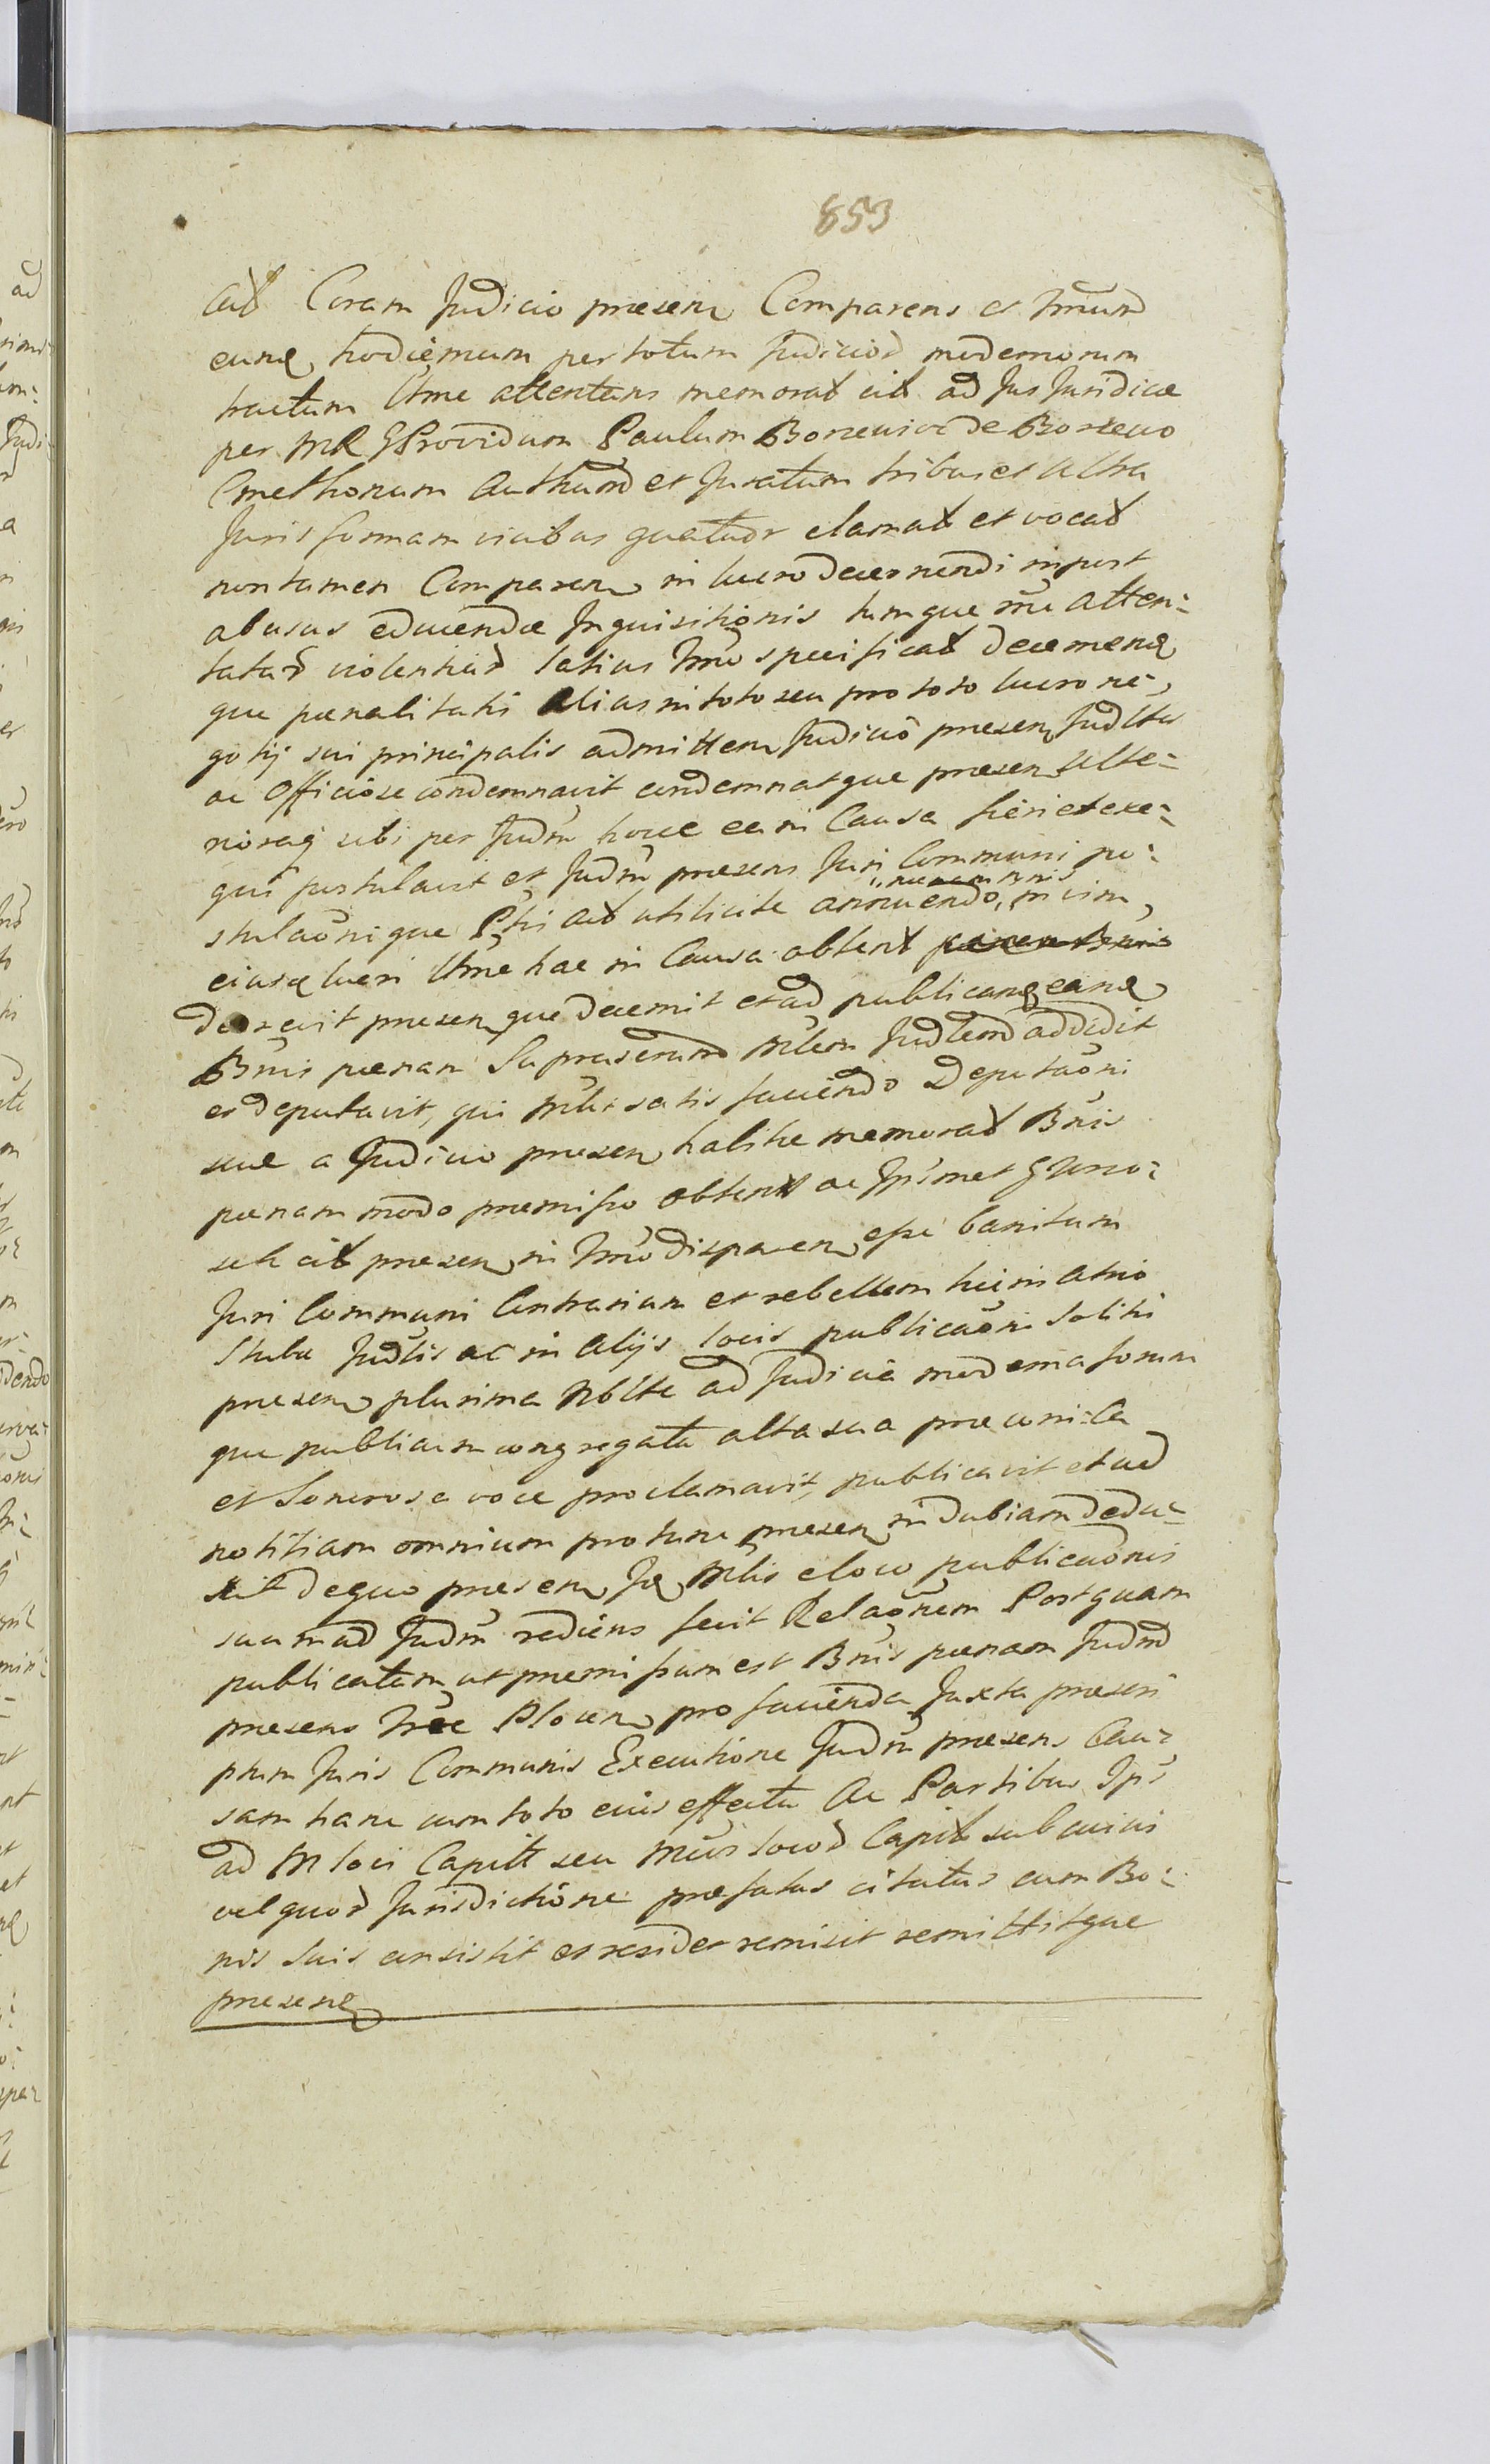 853
Citt Coram Judicio presen Comparens et Trmum
eund hodiernum per totum Judiciod modernorum
tractum Ltme attentans memorat citt ad Jus Juridice
per MR GProvidum Paulum de
Cmethonum Authen et Juratum tribus et Ultra
Juris formam vicibus quatuor clamatt et vocatt
non tamen Comparen in lucro decernendi
abusus educendæ Inquisitionis atten:
tatar violentiar latius Trmo specificatt decernend
que pænalitatis alias in toto seu pro toto lucro ne:
gotij sui principalis admitten Judicio presen Judltr
ac Officiose condemnavit condemnatque presen Ulte:
riorag sibi per Judm hocce ea in Causa fieri et exe:
qui postulavit et Judm presens Juri Communi po:
stulaoni que Pti att utilicite annuendo in vim
eiusd lucri Ltme hac in Causa obtent pænam Bnis
decrevit presen que decernit et ad publicand eand
Bnis pænam Mlem Judlem addidit
et deputavit, qui Mltr satis faciendo Deputaoni
suæ a Judicio presen habitæ memoratt Bnis
pænam modo premisso obtent ac Ipsmet
citt presen in Trmo disparen esse banitum
Juri Communi Contrarium et rebellem hic in atrio
Stubæ Judlis ac in alijs locis publicaoni solitis
presen plurima Nblte ad Judicia moderna forum
que publicum congregata alta sua præconica
et Sonorosa voce proclamavit, publicavit et ad
notitiam omnium pro tunc presen indubiam dedu:
xit de quo presen Jd Mlis e loco publicaonis
suum ad Judm rediens fecit Relaonem Postquam
publicatam ut premissum est Bnis pænam Judm
presens Træ Plocen pro facienda Juxta prescri
ptum Juris Communis Executione Judm presens Cau:
sam hanc cum toto eius effectu ac Partibus Ips
ad M loci Capitt seu locod Capitt sub cuius
vel quor Jurisdictione prefatus citatus cum Bo:
nis suis consistit et residet remisit remittitque
presend